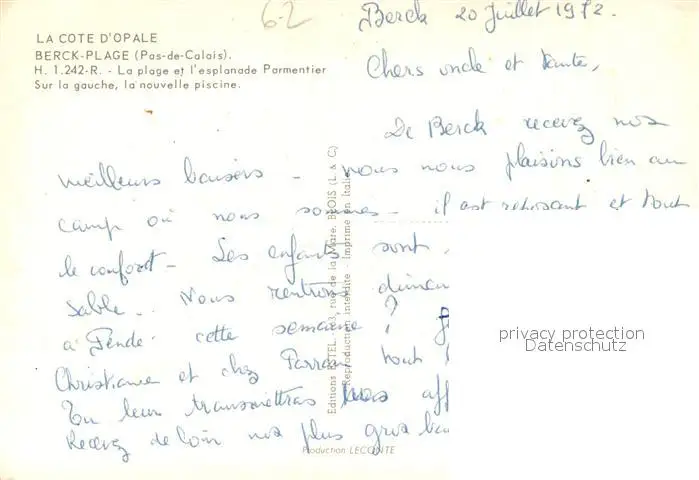 6-2
Berck 20 Juillet 1972.
LA COTE D'OPALE
BERCK-PLAGE (Pas-de-Calais).
H. 1.242-R. - La plage et l'esplanade Parmentier
Sur la gauche, la nouvelle piscine.
Chers oncle et tante,
De Berck recevez nos
meilleurs baisers - nous nous plaisons bien au
camp où nous sommes - il est reposant et tout
le confort - Les enfants sont
sable.. Nous rentrons diman
à Pendé cette semaine ?
Christiane et chez Parrain tout
Tu leur transmettras nos aff
Recevez de loin nos plus gros bai
Editions ESTEL, 63, rue de la Mare, BLOIS (L. & C)
Reproduction interdite - Imprimé en Italie
Production LECONTE
privacy protection
Datenschutz